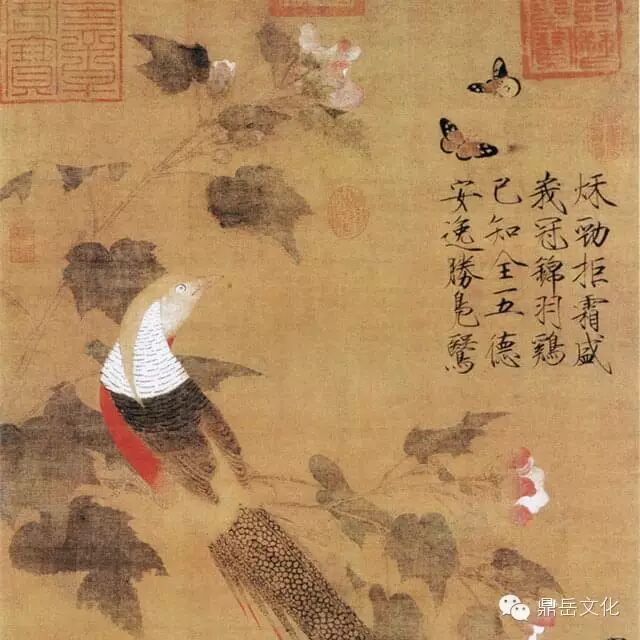 秋勁拒霜盛
峩冠錦羽鷄
已知全五德
安逸勝鳧鷖
鼎岳文化